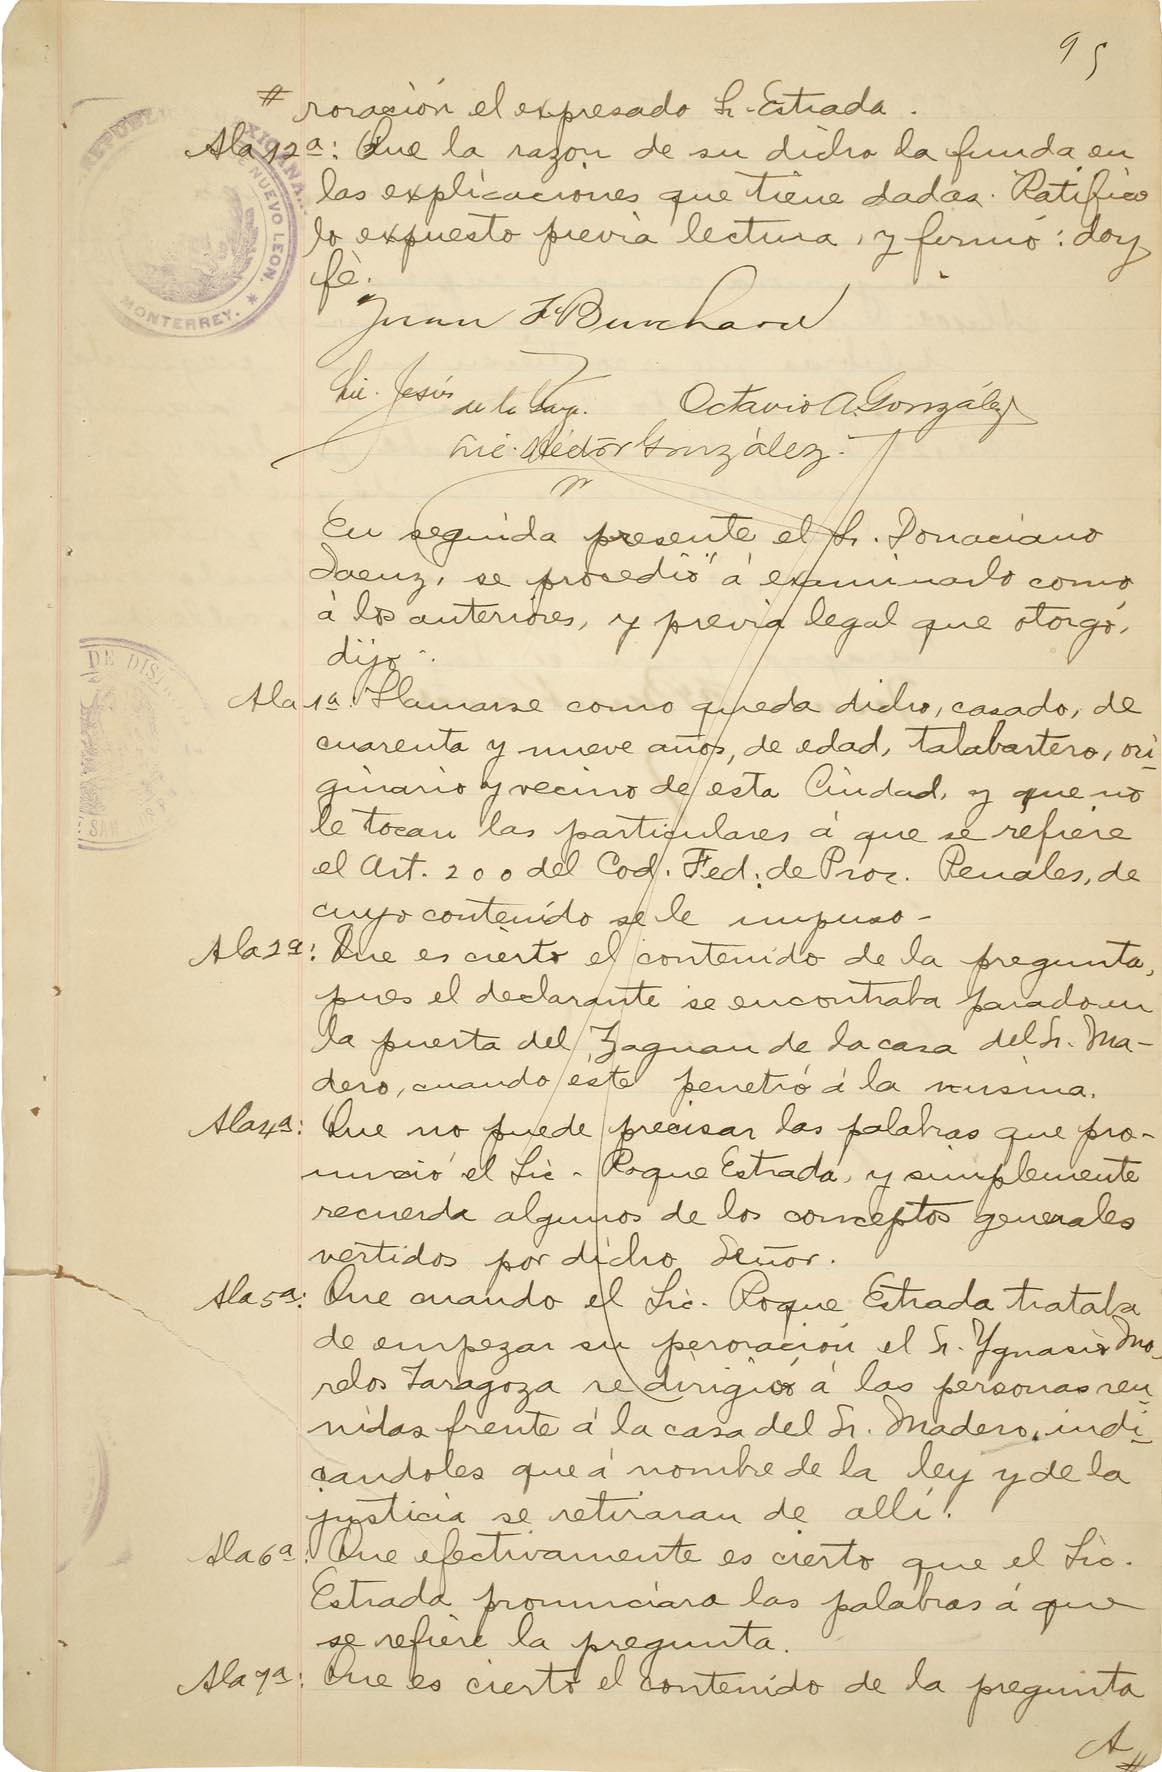 95
# roración el expresado Sr. Estrada.
A la 12a: Que la razon de su dicho la funda en
las explicaciones que tiene dadas. Ratifico
lo expuesto previa lectura, y firmó: doy
fè.
Juan F Burchard
Lic. Jesús
de la Garza.
Octavio A. González
Lic. Héctor González.
En seguida presente el Sr. Donaciano
Saenz, se procedió á examinarlo como
á los anteriores, y previa legal que otorgó,
dijo:
A la 1a: Llamarse como queda dicho, casado, de
cuarenta y nueve años, de edad, talabartero, ori-
ginario y vecino de esta Ciudad, y que no
le tocan las particulares á que se refiere
el Art. 200 del Cod. Fed. de Proc. Penales, de
cuyo contenido se le impuso-
A la 2a: Que es cierto el contenido de la pregunta,
pues el declarante se encontraba parado en
la puerta del Zaguan de la casa del Sr. Ma-
dero, cuando éste penetró á la misma.
A la 4a: Que no puede precisar las palabras que pro-
nunció el Lic. Roque Estrada, y simplemente
recuerda algunos de los conceptos generales
vertidos por dicho Señor.
A la 5a: Que cuando el Lic. Roque Estrada trataba
de empezar su peroración el Sr. Ygnacio Mo-
relos Zaragoza se dirigió á las personas reu-
nidas frente á la casa del Sr. Madero, indi-
candoles que á nombre de la ley y de la
justicia se retiraran de allí.
A la 6a: Que efectivamente es cierto que el Lic.
Estrada pronunciara las palabras á que
se refiere la pregunta.
A la 7a: Que es cierto el contenido de la pregunta
A #
REPUBLICA MEXICANA
NUEVO LEON.
MONTERREY.
DE DIS
SAN